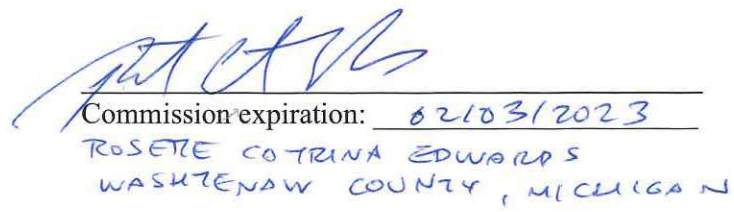 Commission expiration: 02/03/2023
ROSETTE COTRINA EDWARDS
WASHTENAW COUNTY, MICHIGAN